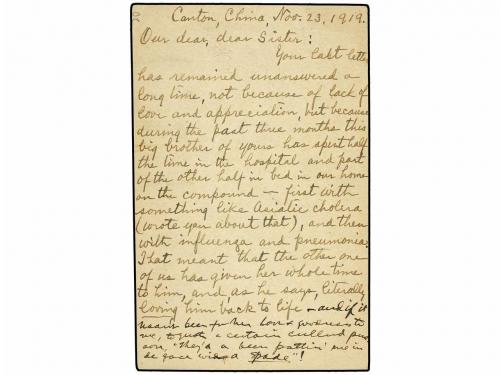 Canton, China, Nov. 23, 1919.
Our dear, dear Sister:
Your last letter
has remained unanswered a
long time, not because of lack of
love and appreciation, but because
during the past three months this
big brother of yours has spent half
the time in the hospital and part
of the other half in bed in our home
on the compound — first with
something like Asiatic cholera
(wrote you about that), and then
with influenza and pneumonia.
That meant that the other one
of us has given her whole time
to him, and, as he says, literally
loving him back to life - and if it
been for her love & goodness to
me, to quote a certain cullud
"they'd a been pattin' me in
de face a spade"!